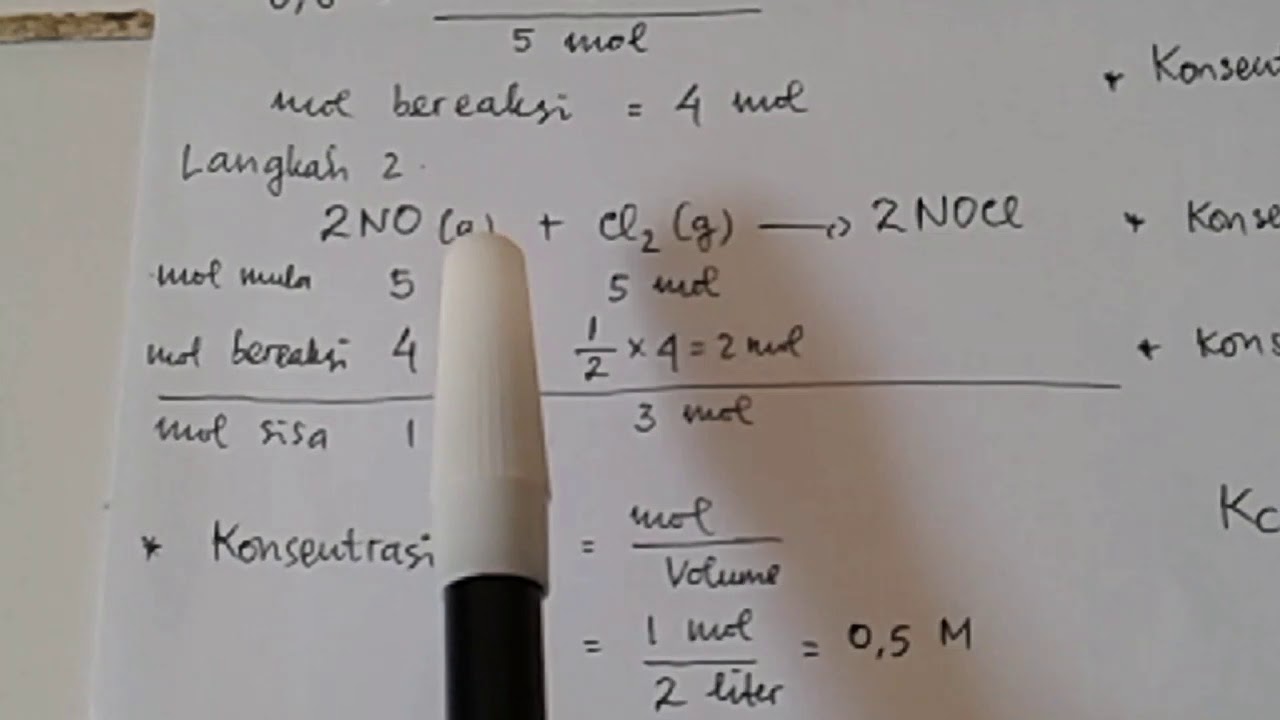 5 mol
mol bereaksi = 4 mol
Langkah 2.
2NO (g) + Cl₂ (g) → 2NOCl
mol mula 5 5 mol
mol bereaksi 4 1/2 × 4 = 2 mol
mol sisa 1 3 mol
* Konsentrasi = mol / Volume
= 1 mol / 2 liter = 0,5 M
*
*
*
Kc